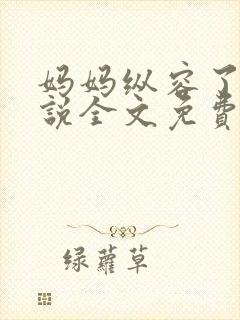 妈妈纵容了
说全文免費
绿蘿草